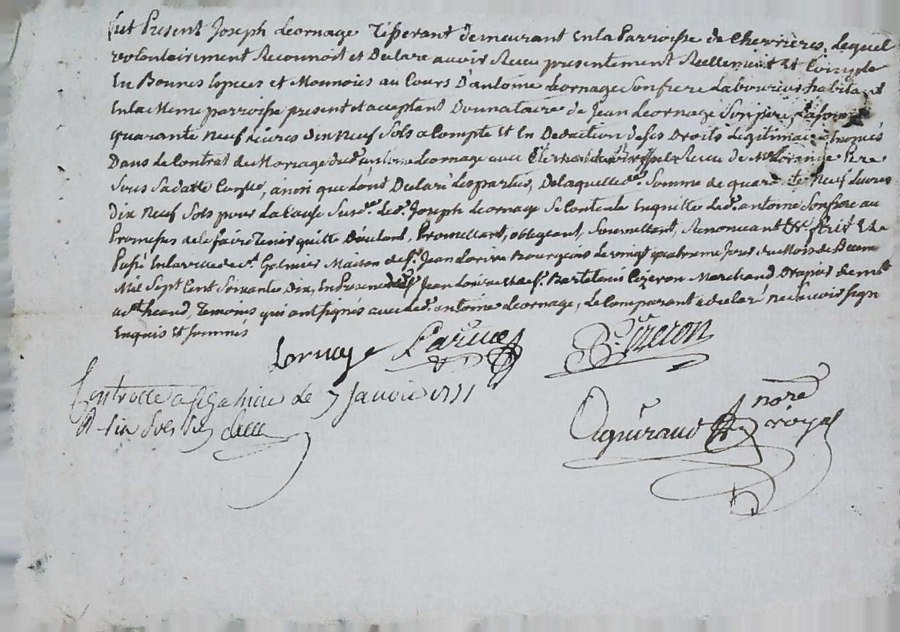 fut Present Joseph Lornage Tisserant demeurant En la Parroisse de Chevrieres, Lequel
volontairement Reconnoit et Declare avoir Recu presentement Reellement Et Compte
En Bonnes Espèces et Monnoies au Cours D'antoine Lornage Son frere Laboureur habitant
En la Meme parroisse present et acceptant Donnataire de Jean Lornage Son pere, La Somme
quarante Neuf Livres Dix Neuf Sols a Compte Et En Deduction de Ses Droits Legitimaires
Dans Le Contrat de Mariage dud. antoine Lornage avec Recu de Me Lorange
Sous Sa datte Controllé, ainsi que Lont Declaré Les parties, De laquelle de. Somme de quarante Neuf Livres
Dix Neuf Sols pour La Cause Susde. Led. Joseph Lornage Se Contente En quitte Led. antoine Son frere au
Promesses de Le faire Tenir quitte Promettant, obligeant, Soumettant, Renonceant &c. fait Et
Passé En la ville de St. Galmier Maison de Sr. Jean Bourgeois Le vingt quatrieme Jour du Mois de Decem
Mil Sept Cent Soixante Dix, En Presence Jean Et de Sr. Bartelemi Cozeron Marchand Drapier
Temoins qui ont Signés avec Led. antoine Lornage, Le Comparant a declaré ne Scavoir Sign
Enquis Et Sommés
Lornage
B. Cozeron
Controllé a St Galmier Le 7 Janvier 1771
R. Six Sols
nore royal